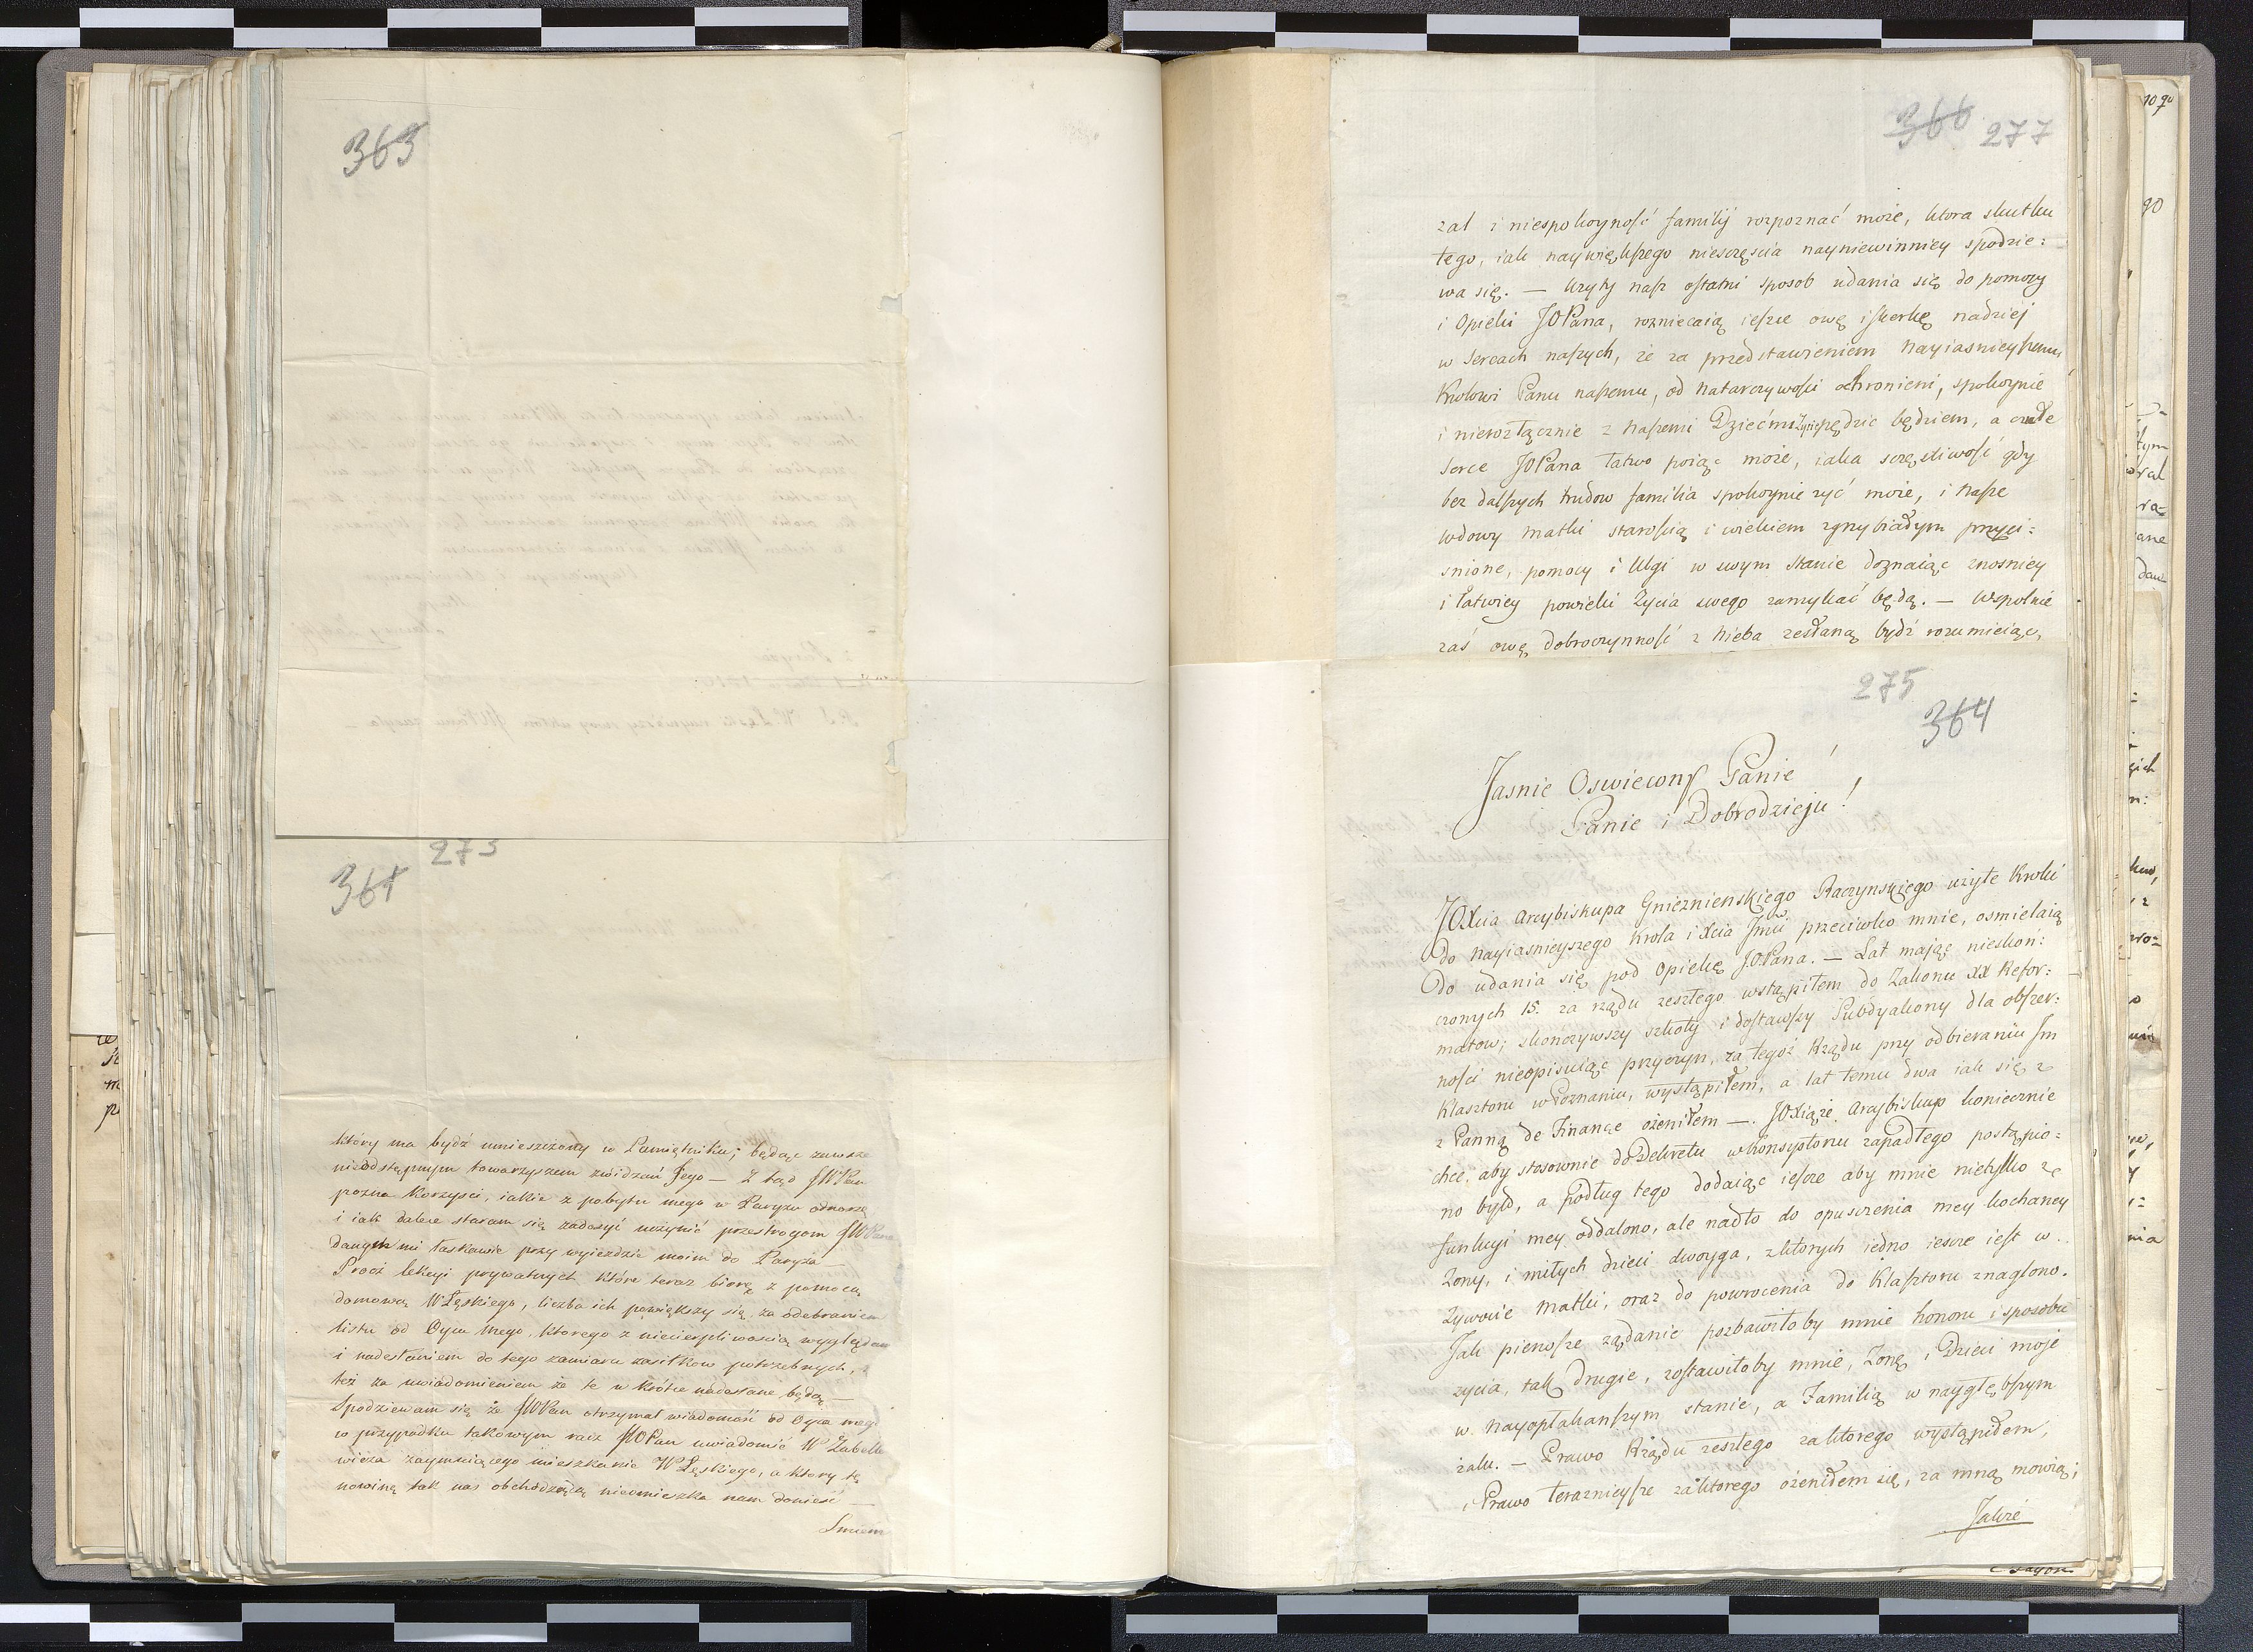 363
273
361
który ma bydź umieszczony w Pamiętniku; będąc zawsze
nieodstępnym towarzyszem zwidzań Jego — Z tąd JWPan
pozna korzyści, iakie z pobytu mego w Paryżu odnoszę
i iak dalece staram się zadosyć uczynić przestrogom JWPana
danym mi łaskawie przy wyieździe moim do Paryża —
Procz lekcyi prywatnych które teraz biorę z pomocą
domową WŁęskiego, liczba ich powiększy się za odebraniem
listu od Oyca mego, ktorego z niecierpliwoscią wyglądam
i nadesłaniem do tego zamiaru zasiłkow potrzebnych,
też za uwiadomieniem że te w krótce nadesłane będą —
Spodziewam się że JWPan otrzymał wiadomość od Oyca mego
w przypadku takowym racz JWPan uwiadomić W Zabełł
wicza zaymuiącego mieszkanie WŁęskiego, a ktory tę
nowinę tak nas obchodzącą nieomieszka nam donieść —
Smiem
366 277
zal i niespokoyność familij rozpoznać może, ktora skutku
tego, iak naywiększego niesczęscia nayniewinniey spodzie:
wa się. — Użyty nasz ostatni sposob udania się do pomocy
i Opieki JOPana, rozniecaią ieszcze owę iskerkę nadziej
w Sercach naszych, że za przedstawieniem Nayiasnieyszemu
Krolowi Panu naszemu, od natarczywości ochronieni, spokoynie
i nierozłącznie z naszemi Dziećmi życie pędzic będziem, a czułe
serce JOPana łatwo poiąc może, iaka sczęsliwość gdy
bez dalszych trudow familia spokoynie żyć może, i nasze
wdowy matki starością i wiekiem zgnybiałym przyci:
snione, pomocy i Ulgi w swym stanie doznaiąc znosniey
i łatwiey powieki Zycia swego zamykać będą. — Wspolnie
zaś owę dobroczynność z Nieba zesłaną bydź rozumieiąc,
275
364
Jasnie Oswiecony Panie
Panie i Dobrodzieju!
JOXcia Arcybiskupa Gnieznienskiego Raczynskiego użyte Kroki
do Nayiasnieyszego Krola i Xcia Jmci przeciwko mnie, osmielaią
do udania się pod Opiekę JOPana. — Lat mając nieskoń:
czonych 15. za rządu zeszłego wstąpiłem do Zakonu XX Refor:
matow; skończywszy szkoły i dostawszy Subdyakony dla obszer:
ności nieopisuiąc przyczyn, za tegoż Rządu przy odbieraniu Im
Klasztoru w Poznaniu, wystąpiłem, a lat temu dwa iak się z
z Panną de Finance ożeniłem —. JOXiąże Arcybiskup koniecznie
chce, aby stosownie do Dekretu w Konsystoru zapadłego postąpio:
no było, a podług tego dodaiąc ieszcze aby mnie nietylko ze
funkcyi mey oddalono, ale nadto do opuszczenia mey kochaney
Zony, i miłych dzieci dwoyga, z ktorych iedno ieszcze iest w
Zywocie matki, oraz do powrocenia do Klasztoru znaglono.
Jak pierwsze żądanie pozbawiłoby mnie honoru i sposobu
zycia, tak drugie, zostawiłoby mnie, Zonę i Dzieci moje
w nayopłakanszym stanie, a Familią w naygłębszym
żalu. — Prawo Rządu zeszłego za ktorego wystąpiłem,
i Prawo terazniejsze za ktorego ożeniłem się, za mną mowią;
Jakże